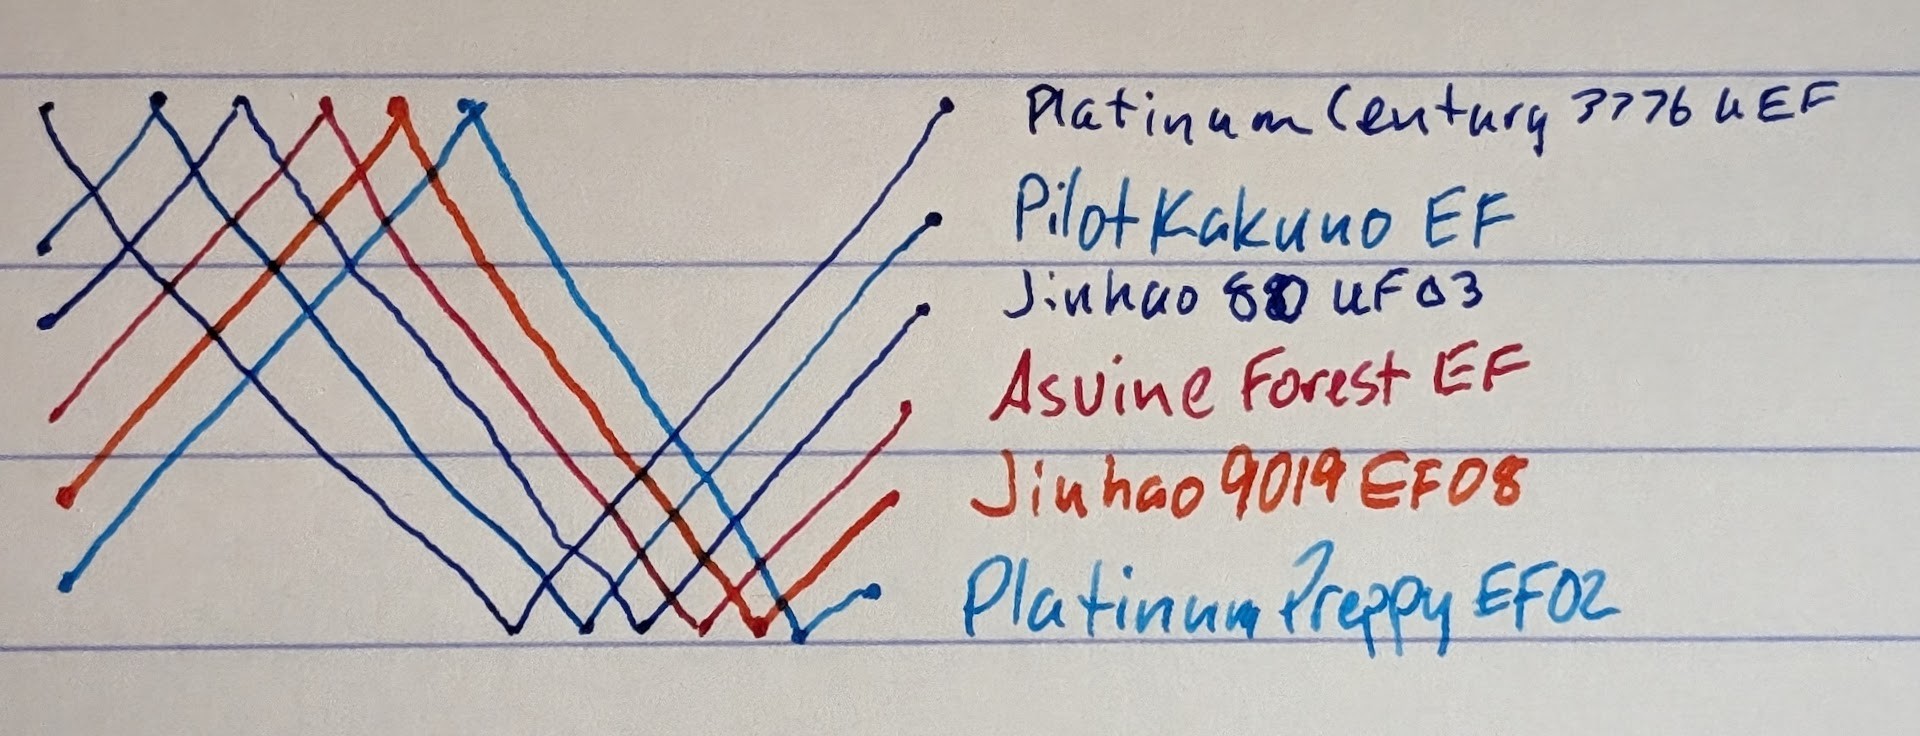 Platinum Century 3776 UEF
Pilot Kakuno EF
Jinhao 80 UF 03
Asvine Forest EF
Jinhao 9019 EF08
Platinum Preppy EF02